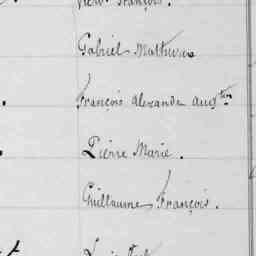 François.
Gabriel Mathurin
François Alexandre Augtin
Pierre Marie.
Guillaume François.